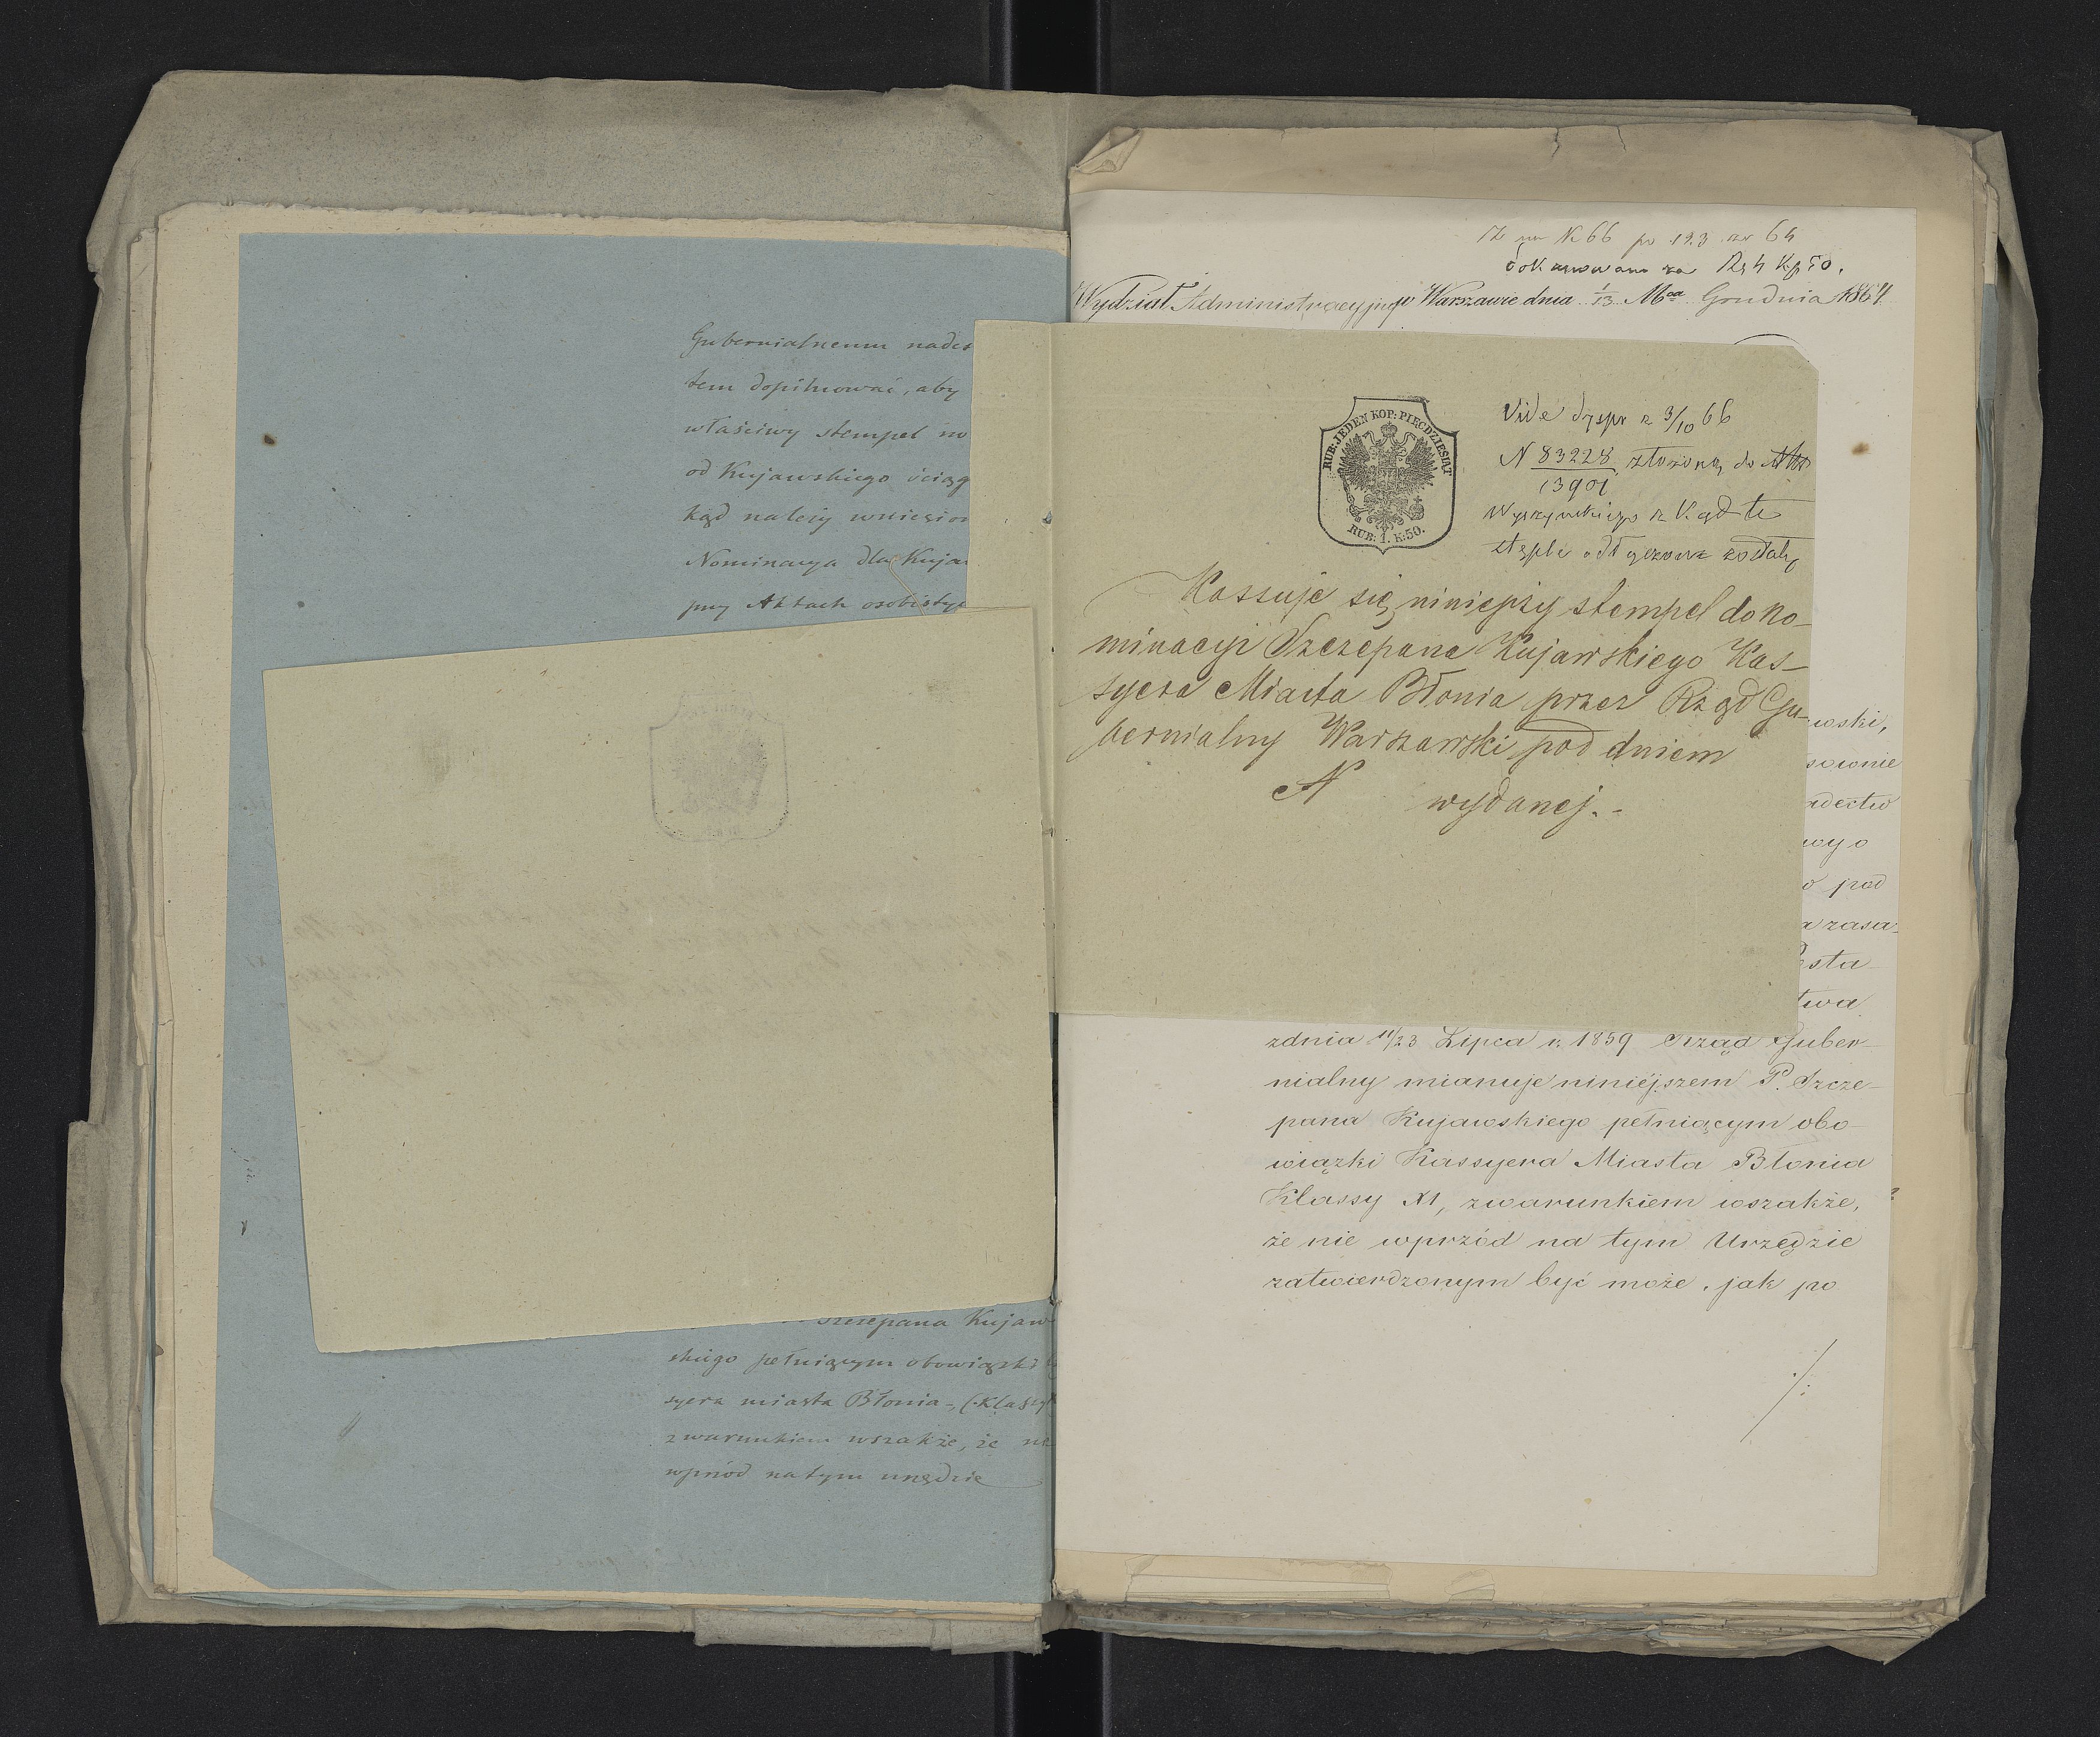 Gubernialnemu nades
tem dopilnować, aby
właściwy stempel no
od Kujawskiego ściąg
kąd należy wniesion
Nominacya dla Kujaw
przy Aktach osobistyc
Szczepana Kujaw
skiego pełniącym obowiązki
syera miasta Błonia -, (Klassy
z warunkiem wszakże, że nie
wprzód na tym urzędzie
na № 66 po 123 64
Wydział Administracyjny w Warszawie dnia 1/13 Mca Grudnia 1864
RUB: JEDEN KOP: PIĘĆDZIESIĄT
RUB: 1. K: 50.
Vide dyspr z 3/10 66
N 83228 złożoną do Akt
13901
Wyszyńskiego z kąd te
stęple odłączone zostały
Kassuje się niniejszy stempel do no-
minacyi Szczepana Kujawskiego Kas-
syera Miasta Błonia przez Rząd Gu-
bernialny Warszawski pod dniem
N wydanej. -
wski,
sownie
adectw
wyo
o pod
a zasa-
esta-
twa
z dnia 11/23 Lipca r. 1859 Rząd Guber-
nialny mianuje niniéjszem P. Szcze-
pana Kujawskiego pełniącym obo-
wiązki Kassyera Miasta Błonia
Klassy XI, z warunkiem wszakże,
że nie wprzód na tym Urzędzie
zatwierdzonym być może, jak po
./.